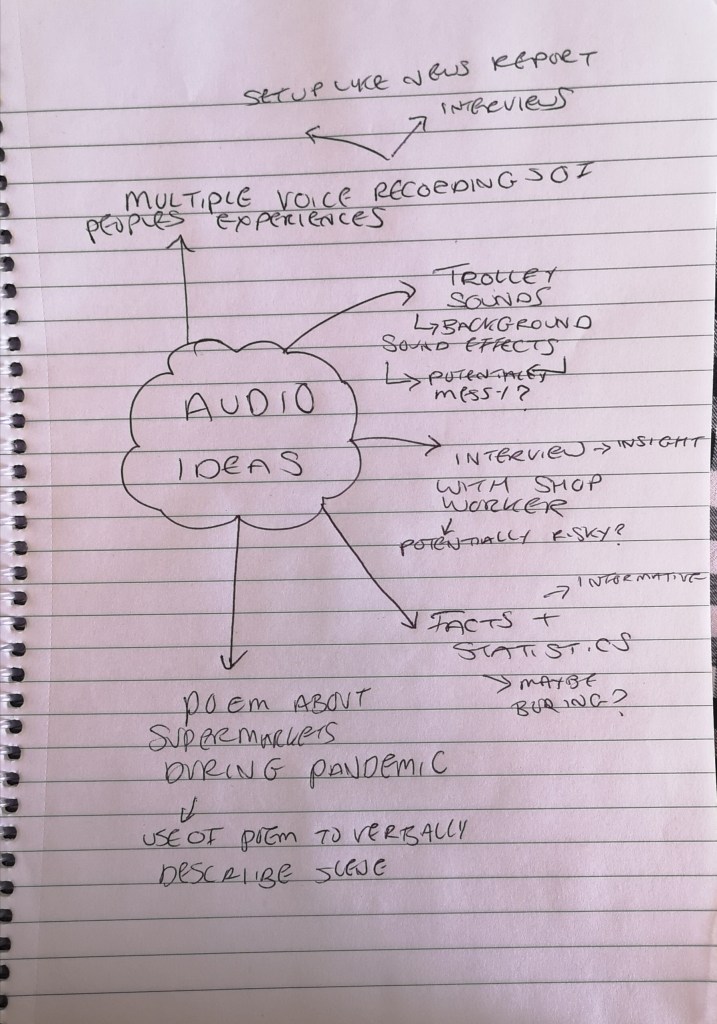 SETUP LIKE NEWS REPORT
INTERVIEWS
MULTIPLE VOICE RECORDINGS OF
PEOPLES EXPERIENCES
TROLLEY
SOUNDS
BACKGROUND
SOUND EFFECTS
POTENTIALLY
MESSY?
AUDIO
IDEAS
INTERVIEW → INSIGHT
WITH SHOP
WORKER
POTENTIALLY RISKY?
→ INFORMATIVE
FACTS +
STATISTICS
MAYBE
BORING?
POEM ABOUT
SUPERMARKETS
DURING PANDEMIC
USE OF POEM TO VERBALLY
DESCRIBE SCENE